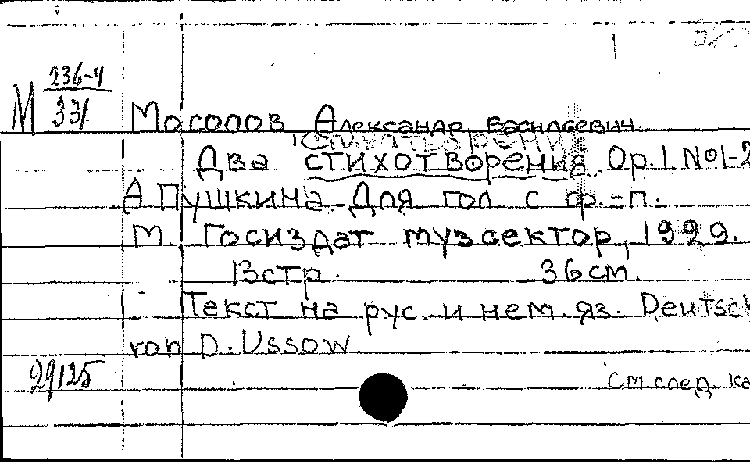 М 236-4
331
Мосолов Александр Васильевич
Два стихотворения Op.1 №1-2
А Пушкина. Для гол. с ф.-п.
М. Госиздат музсектор, 1929.
13стр. 36см.
Текст на рус. и нем. яз. Deutsch
von D. Ussow
29125
См след. ка